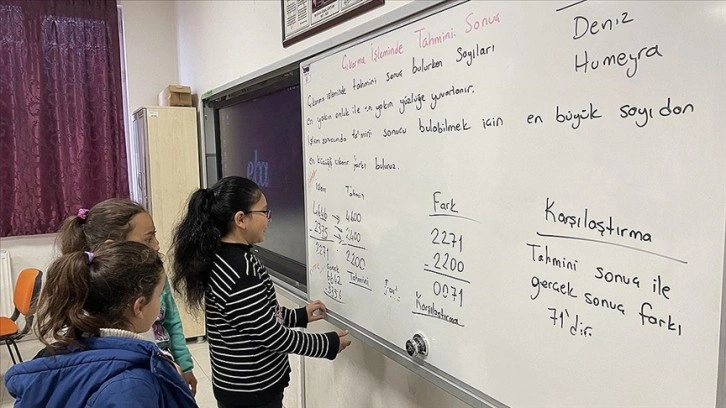 Çıkarma İşleminde Tahmini Sonuç
Çıkarma işleminde tahmini sonuç bulurken sayıları
en yakın onluk ile en yakın yüzlüğe yuvarlanır.
İşlem sonucunda tahmini sonucu bulabilmek için en büyük sayıdan
en küçüğü çıkarır farkı buluruz.
Deniz
Humeyra
İşlem Tahmin
4646 → 4600
- 2375 → - 2400
2271 2200
Tahmini
Fark
2271
- 2200
0071
Karşılaştırma
Karşılaştırma
Tahmini sonuç ile
gerçek sonuç farkı
71'dir.
eba